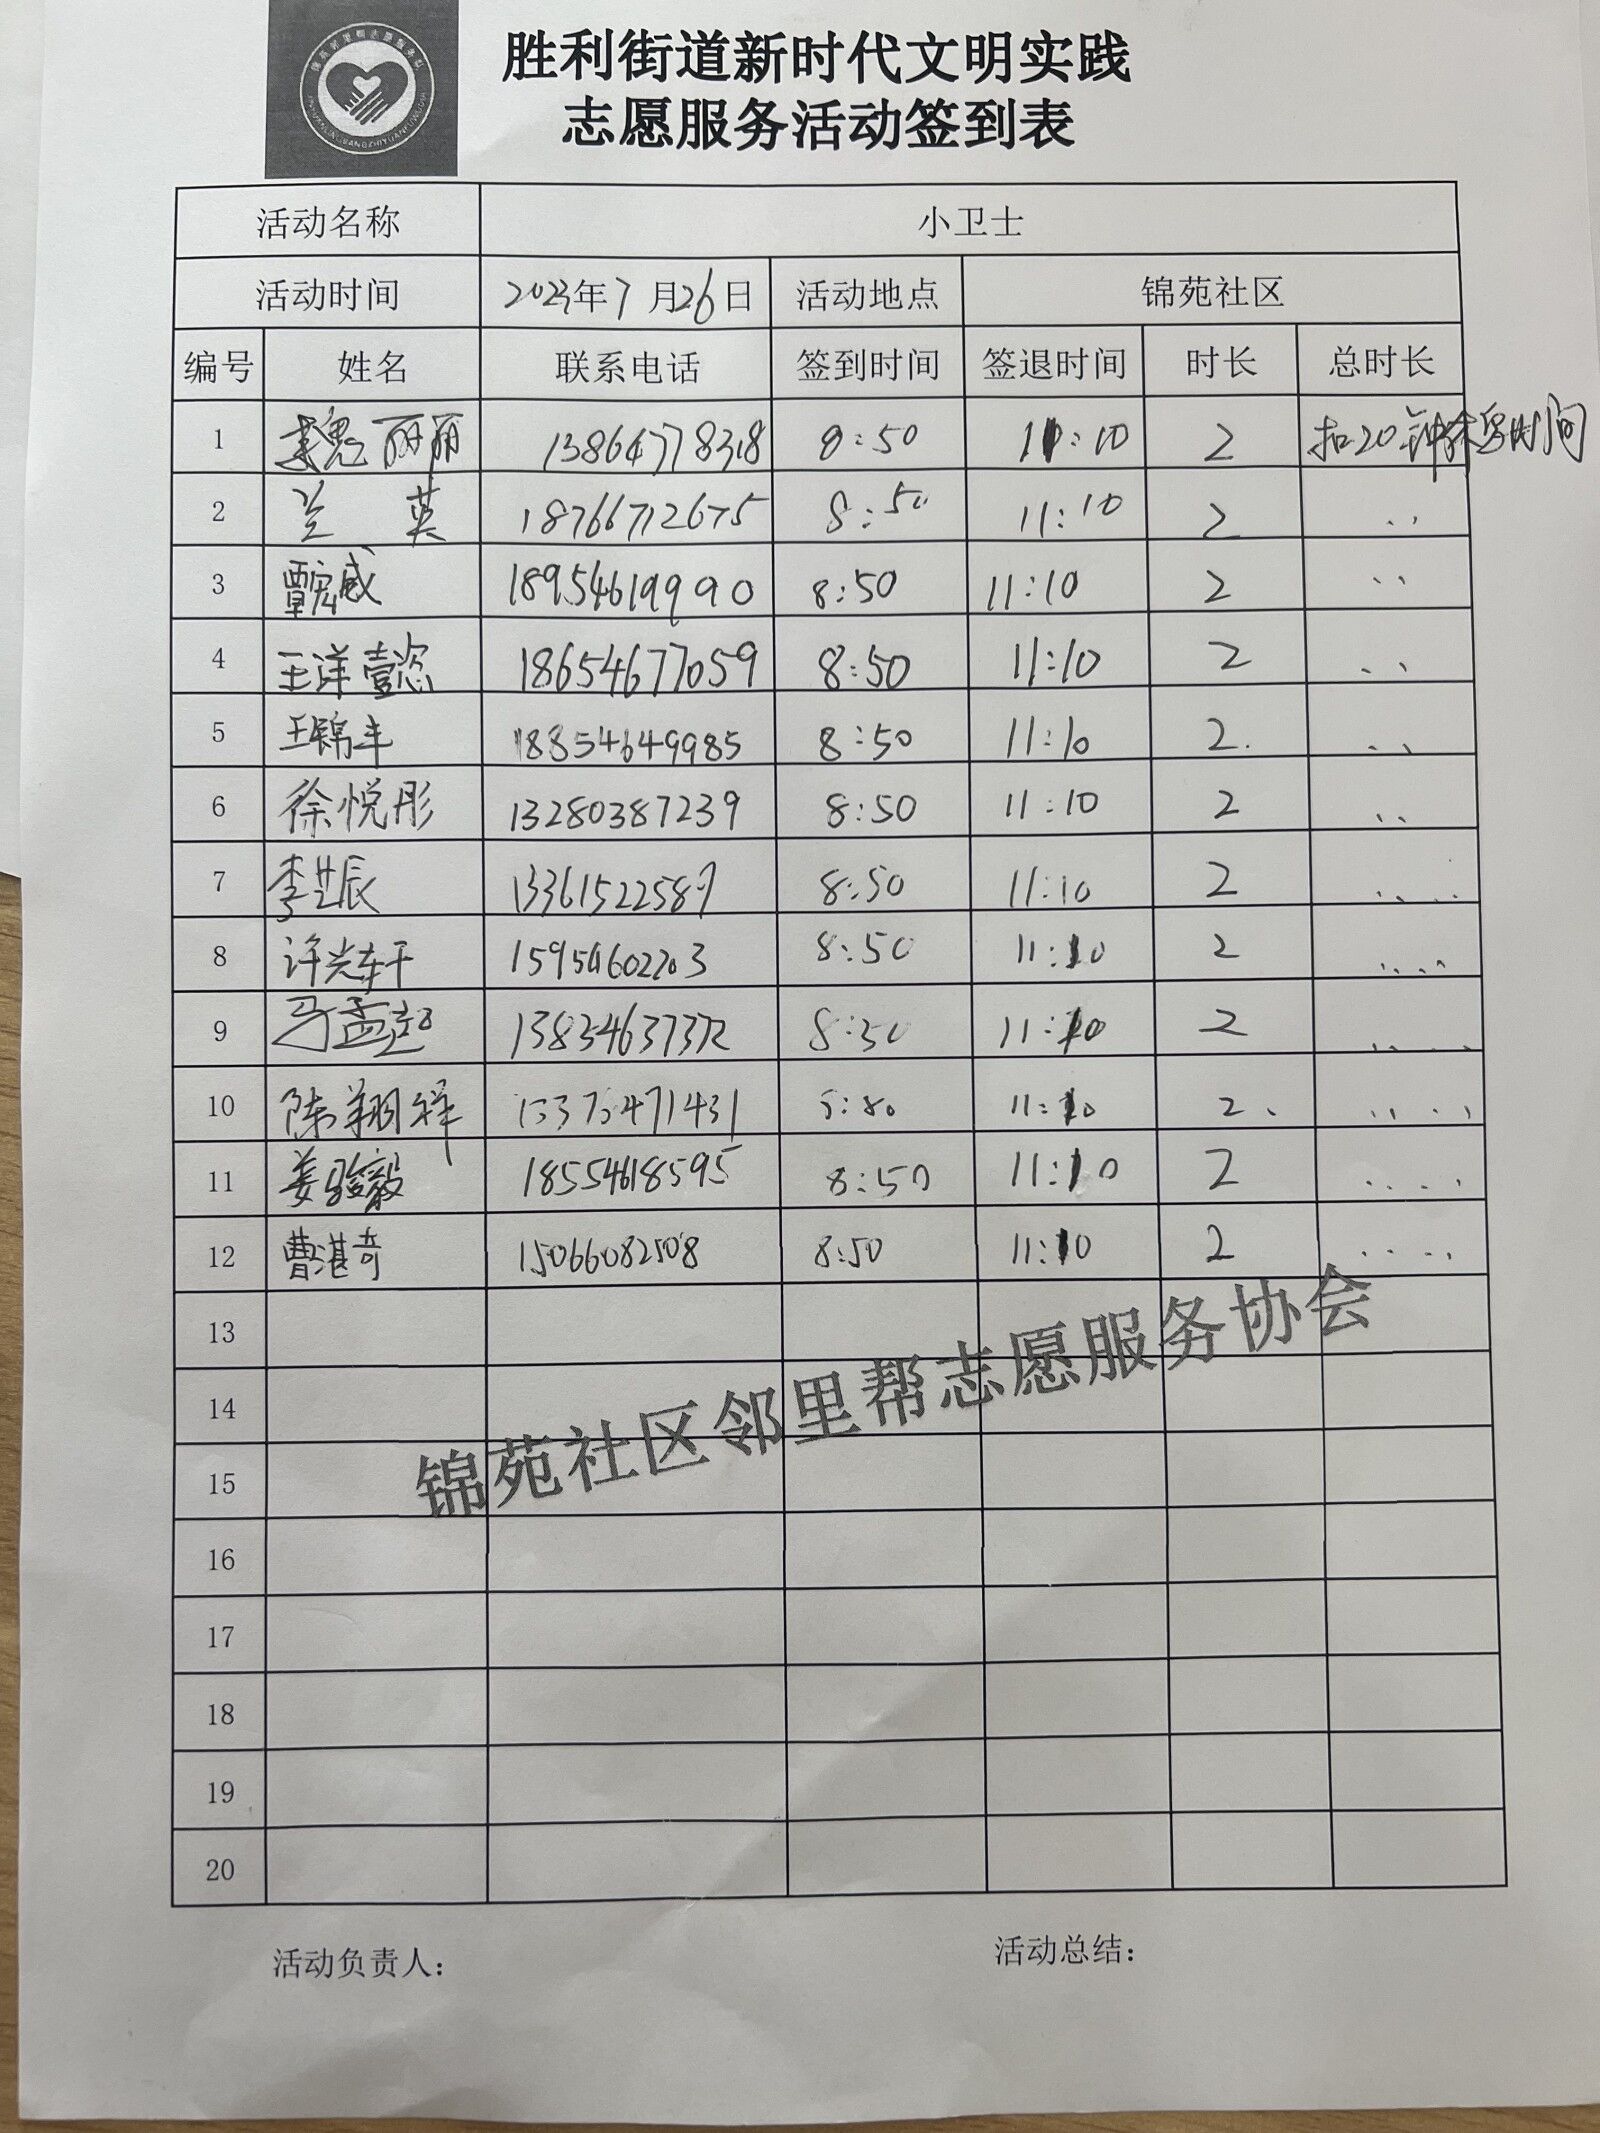 胜利街道新时代文明实践
志愿服务活动签到表
活动名称 小卫士
活动时间 2023年7月26日 活动地点 锦苑社区
编号 姓名 联系电话 签到时间 签退时间 时长 总时长
1 丽丽 13864778318 8:50 11:10 2 扣20钟休息时间
2 兰英 18766712675 8:50 11:10 2 ..
3 覃宏威 18954619990 8:50 11:10 2 ..
4 王洋壹恣 18654677059 8:50 11:10 2 ..
5 王锦丰 18854649985 8:50 11:10 2. ..
6 徐悦彤 13280387239 8:50 11:10 2 ..
7 李芷辰 13361522589 8:50 11:10 2 ....
8 许光轩 15954602203 8:50 11:10 2 ....
9 马孟起 13834637372 8:50 11:10 2 ....
10 陈翔祥 11:10 2. ....
11 姜骏毅 18554618595 8:50 11:10 2 ....
12 曹湛奇 15066082508 8:50 11:10 2 ....
13
14
15
16
17
18
19
20
锦苑社区邻里帮志愿服务协会
活动负责人： 活动总结：